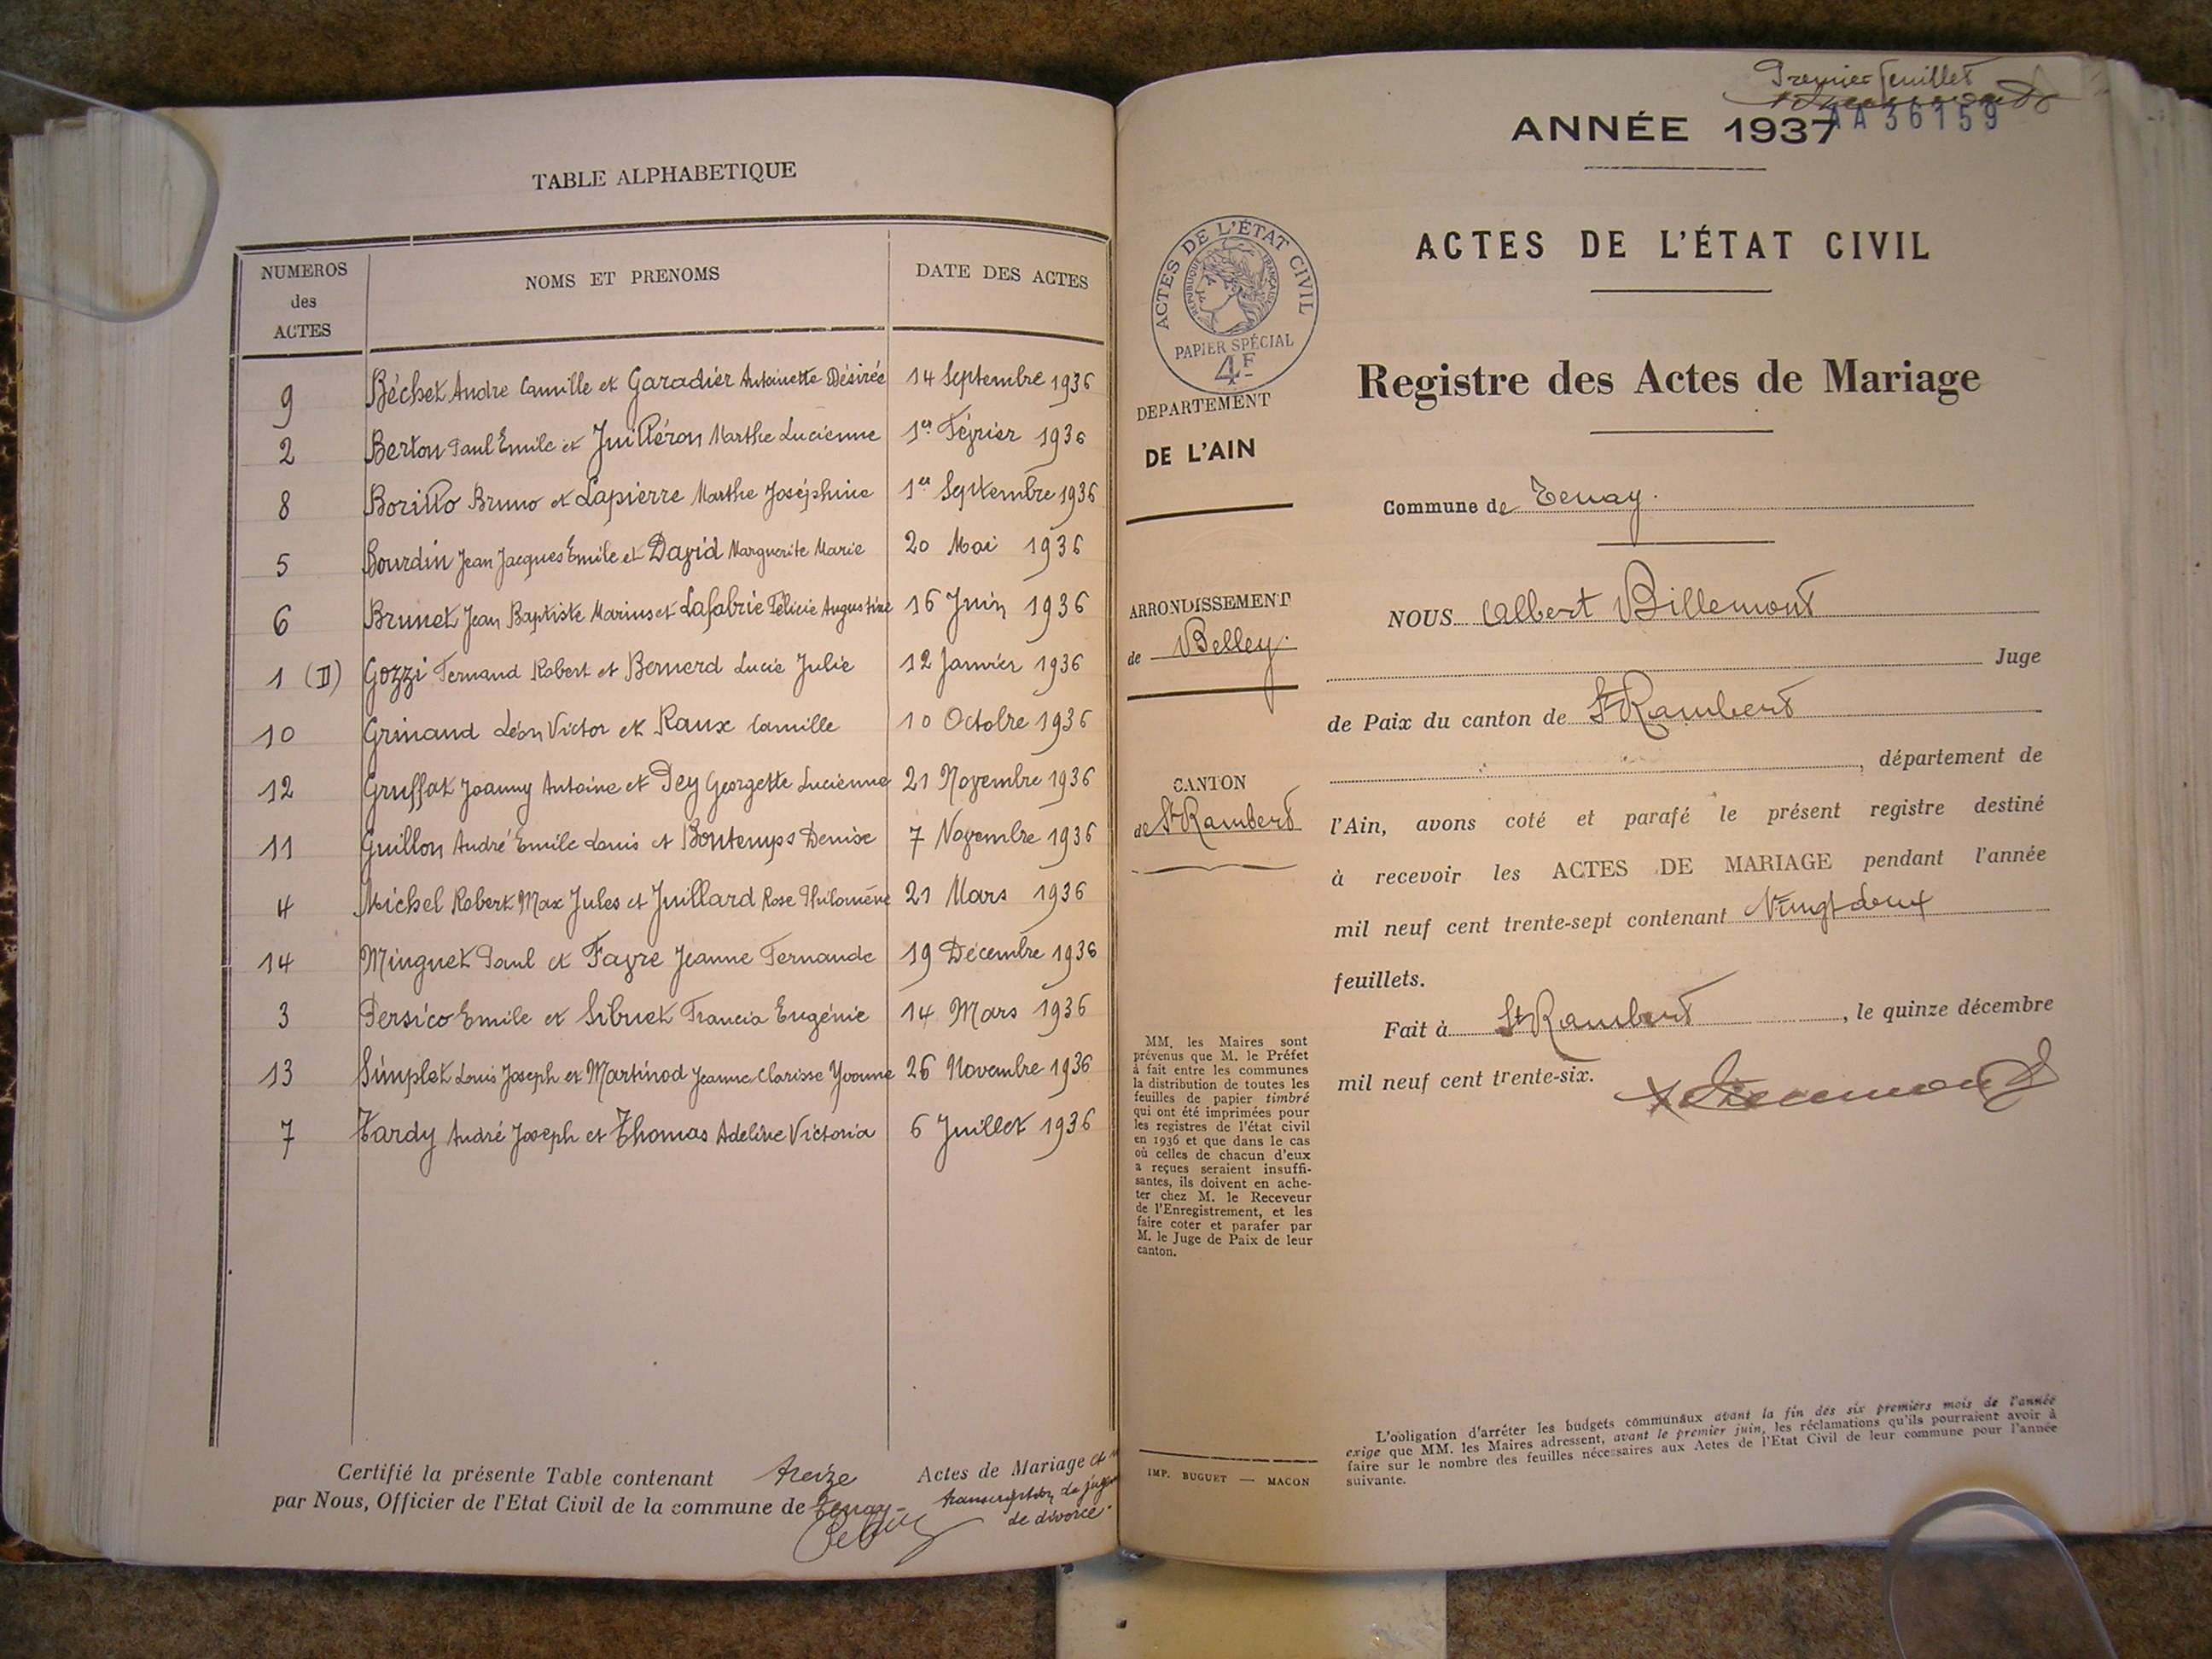 TABLE ALPHABETIQUE
NUMEROS des ACTES | NOMS ET PRENOMS | DATE DES ACTES
9 Béchet Andre Camille et Garadier Antoinette Désirée 14 Septembre 1936
2 Berton Paul Emile et Juilléron Marthe Lucienne 1er Février 1936
8 Boritto Bruno et Lapierre Marthe Joséphine 1er Septembre 1936
5 Bourdin Jean Jacques Emile et David Marguerite Marie 20 Mai 1936
6 Brunet Jean Baptiste Marius et Lafabrie Félicie Augustine 16 Juin 1936
1 (D) Gozzi Fernand Robert et Bernerd Lucie Julie 12 Janvier 1936
10 Grinand Léon Victor et Raux Camille 10 Octobre 1936
12 Gruffat Joanny Antoine et Dey Georgette Lucienne 21 Novembre 1936
11 Guillon André Emile Louis et Bontemps Denise 7 Novembre 1936
4 Michel Robert Max Jules et Juillard Rose Philomène 21 Mars 1936
14 Minguet Paul et Favre Jeanne Fernande 19 Décembre 1936
3 Persico Emile et Sibuet Francia Eugénie 14 Mars 1936
13 Simplet Louis Joseph et Martinod Jeanne Clarisse Yvonne 26 Novembre 1936
7 Tardy André Joseph et Thomas Adeline Victoria 6 Juillet 1936
Certifié la présente Table contenant treize Actes de Mariage et
transcription de
par Nous, Officier de l'Etat Civil de la commune de Tenay
de divorce
Premier feuillet
AA 36159
ANNÉE 1937
ACTES DE L'ÉTAT CIVIL
RÉPUBLIQUE FRANÇAISE
PAPIER SPÉCIAL
4F
DEPARTEMENT
DE L'AIN
ARRONDISSEMENT
de Belley.
CANTON
de St Rambert
MM. les Maires sont
prévenus que M. le Préfet
à fait entre les communes
la distribution de toutes les
feuilles de papier timbré
qui ont été imprimées pour
les registres de l'état civil
en 1936 et que dans le cas
où celles de chacun d'eux
a reçues seraient insuffi-
santes, ils doivent en ache-
ter chez M. le Receveur
de l'Enregistrement, et les
faire coter et parafer par
M. le Juge de Paix de leur
canton.
IMP. BUGUET — MACON
ACTES DE L'ÉTAT CIVIL
Registre des Actes de Mariage
Commune de Tenay.
NOUS Albert Billemont
Juge
de Paix du canton de St Rambert
, département de
l'Ain, avons coté et parafé le présent registre destiné
à recevoir les ACTES DE MARIAGE pendant l'année
mil neuf cent trente-sept contenant Vingt deux
feuillets.
Fait à St Rambert, le quinze décembre
mil neuf cent trente-six.
L'obligation d'arrêter les budgets communaux avant la fin des six premiers mois de l'année
exige que MM. les Maires adressent, avant le premier juin, les réclamations qu'ils pourraient avoir à
faire sur le nombre des feuilles nécessaires aux Actes de l'Etat Civil de leur commune pour l'année
suivante.